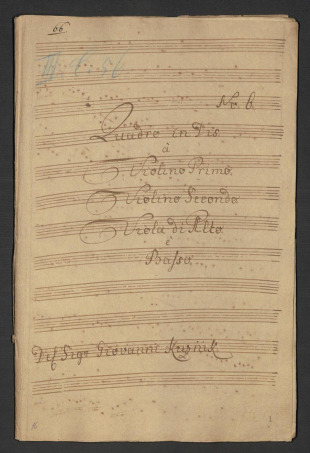 66
No. 6.
Quadro in Dis
à
Violino Primo.
Violino Secondo
Viola di Alto
e
Basso.
Del Sigr Giovanni